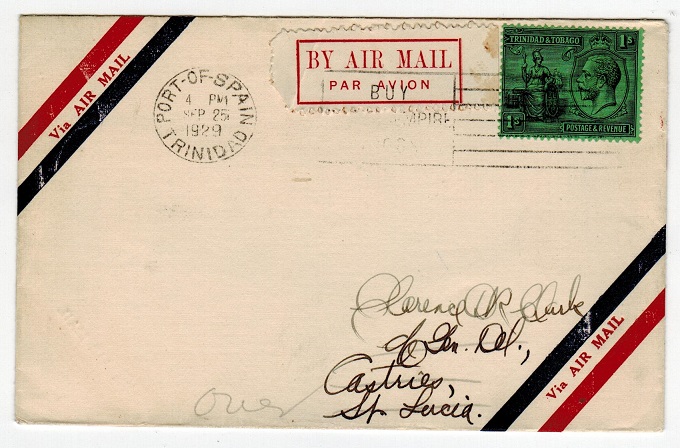 Via AIR MAIL
PORT-OF-SPAIN
4 PM
SEP 25
1929
TRINIDAD
BY AIR MAIL
PAR AVION
BUY
EMPIRE
TRINIDAD & TOBAGO
1S
1S
POSTAGE & REVENUE
Clarence A. R. Clark
c/o Gen. Del.,
Castries,
St. Lucia.
over
Via AIR MAIL